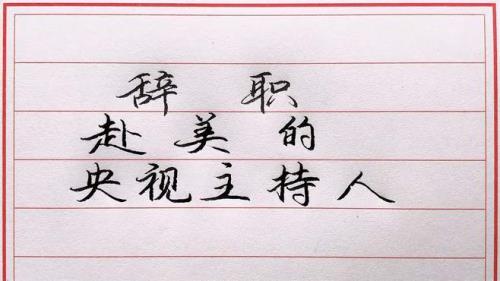 辞职
赴美的
央视主持人